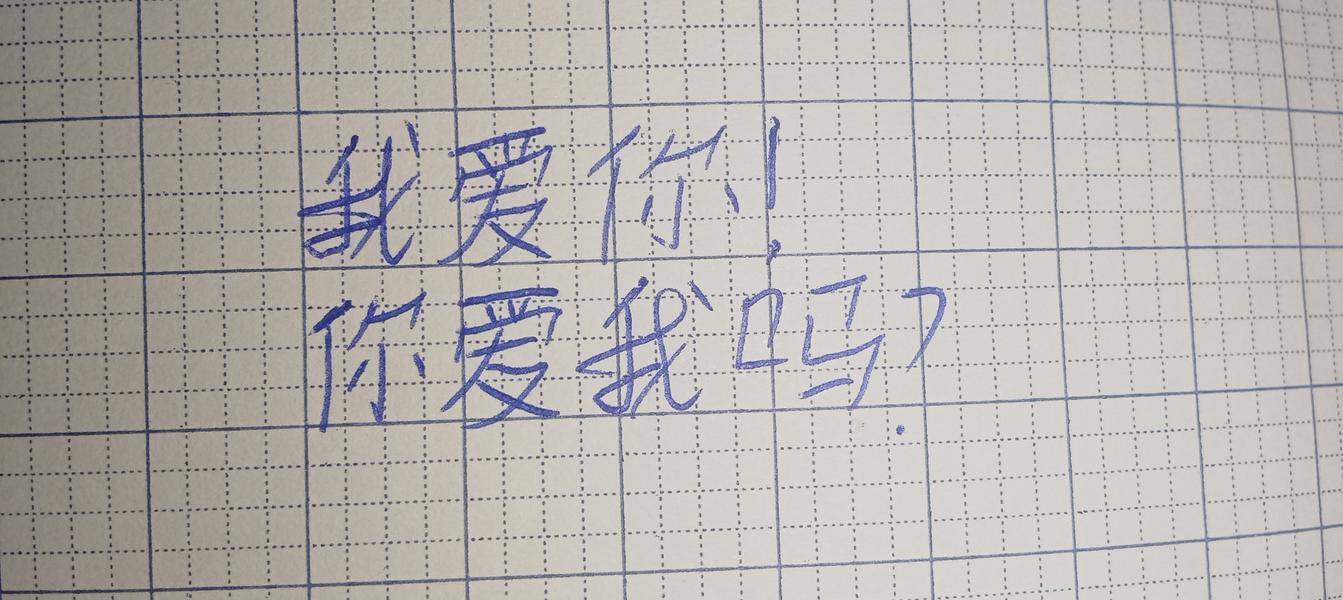 我爱你!
你爱我吗?